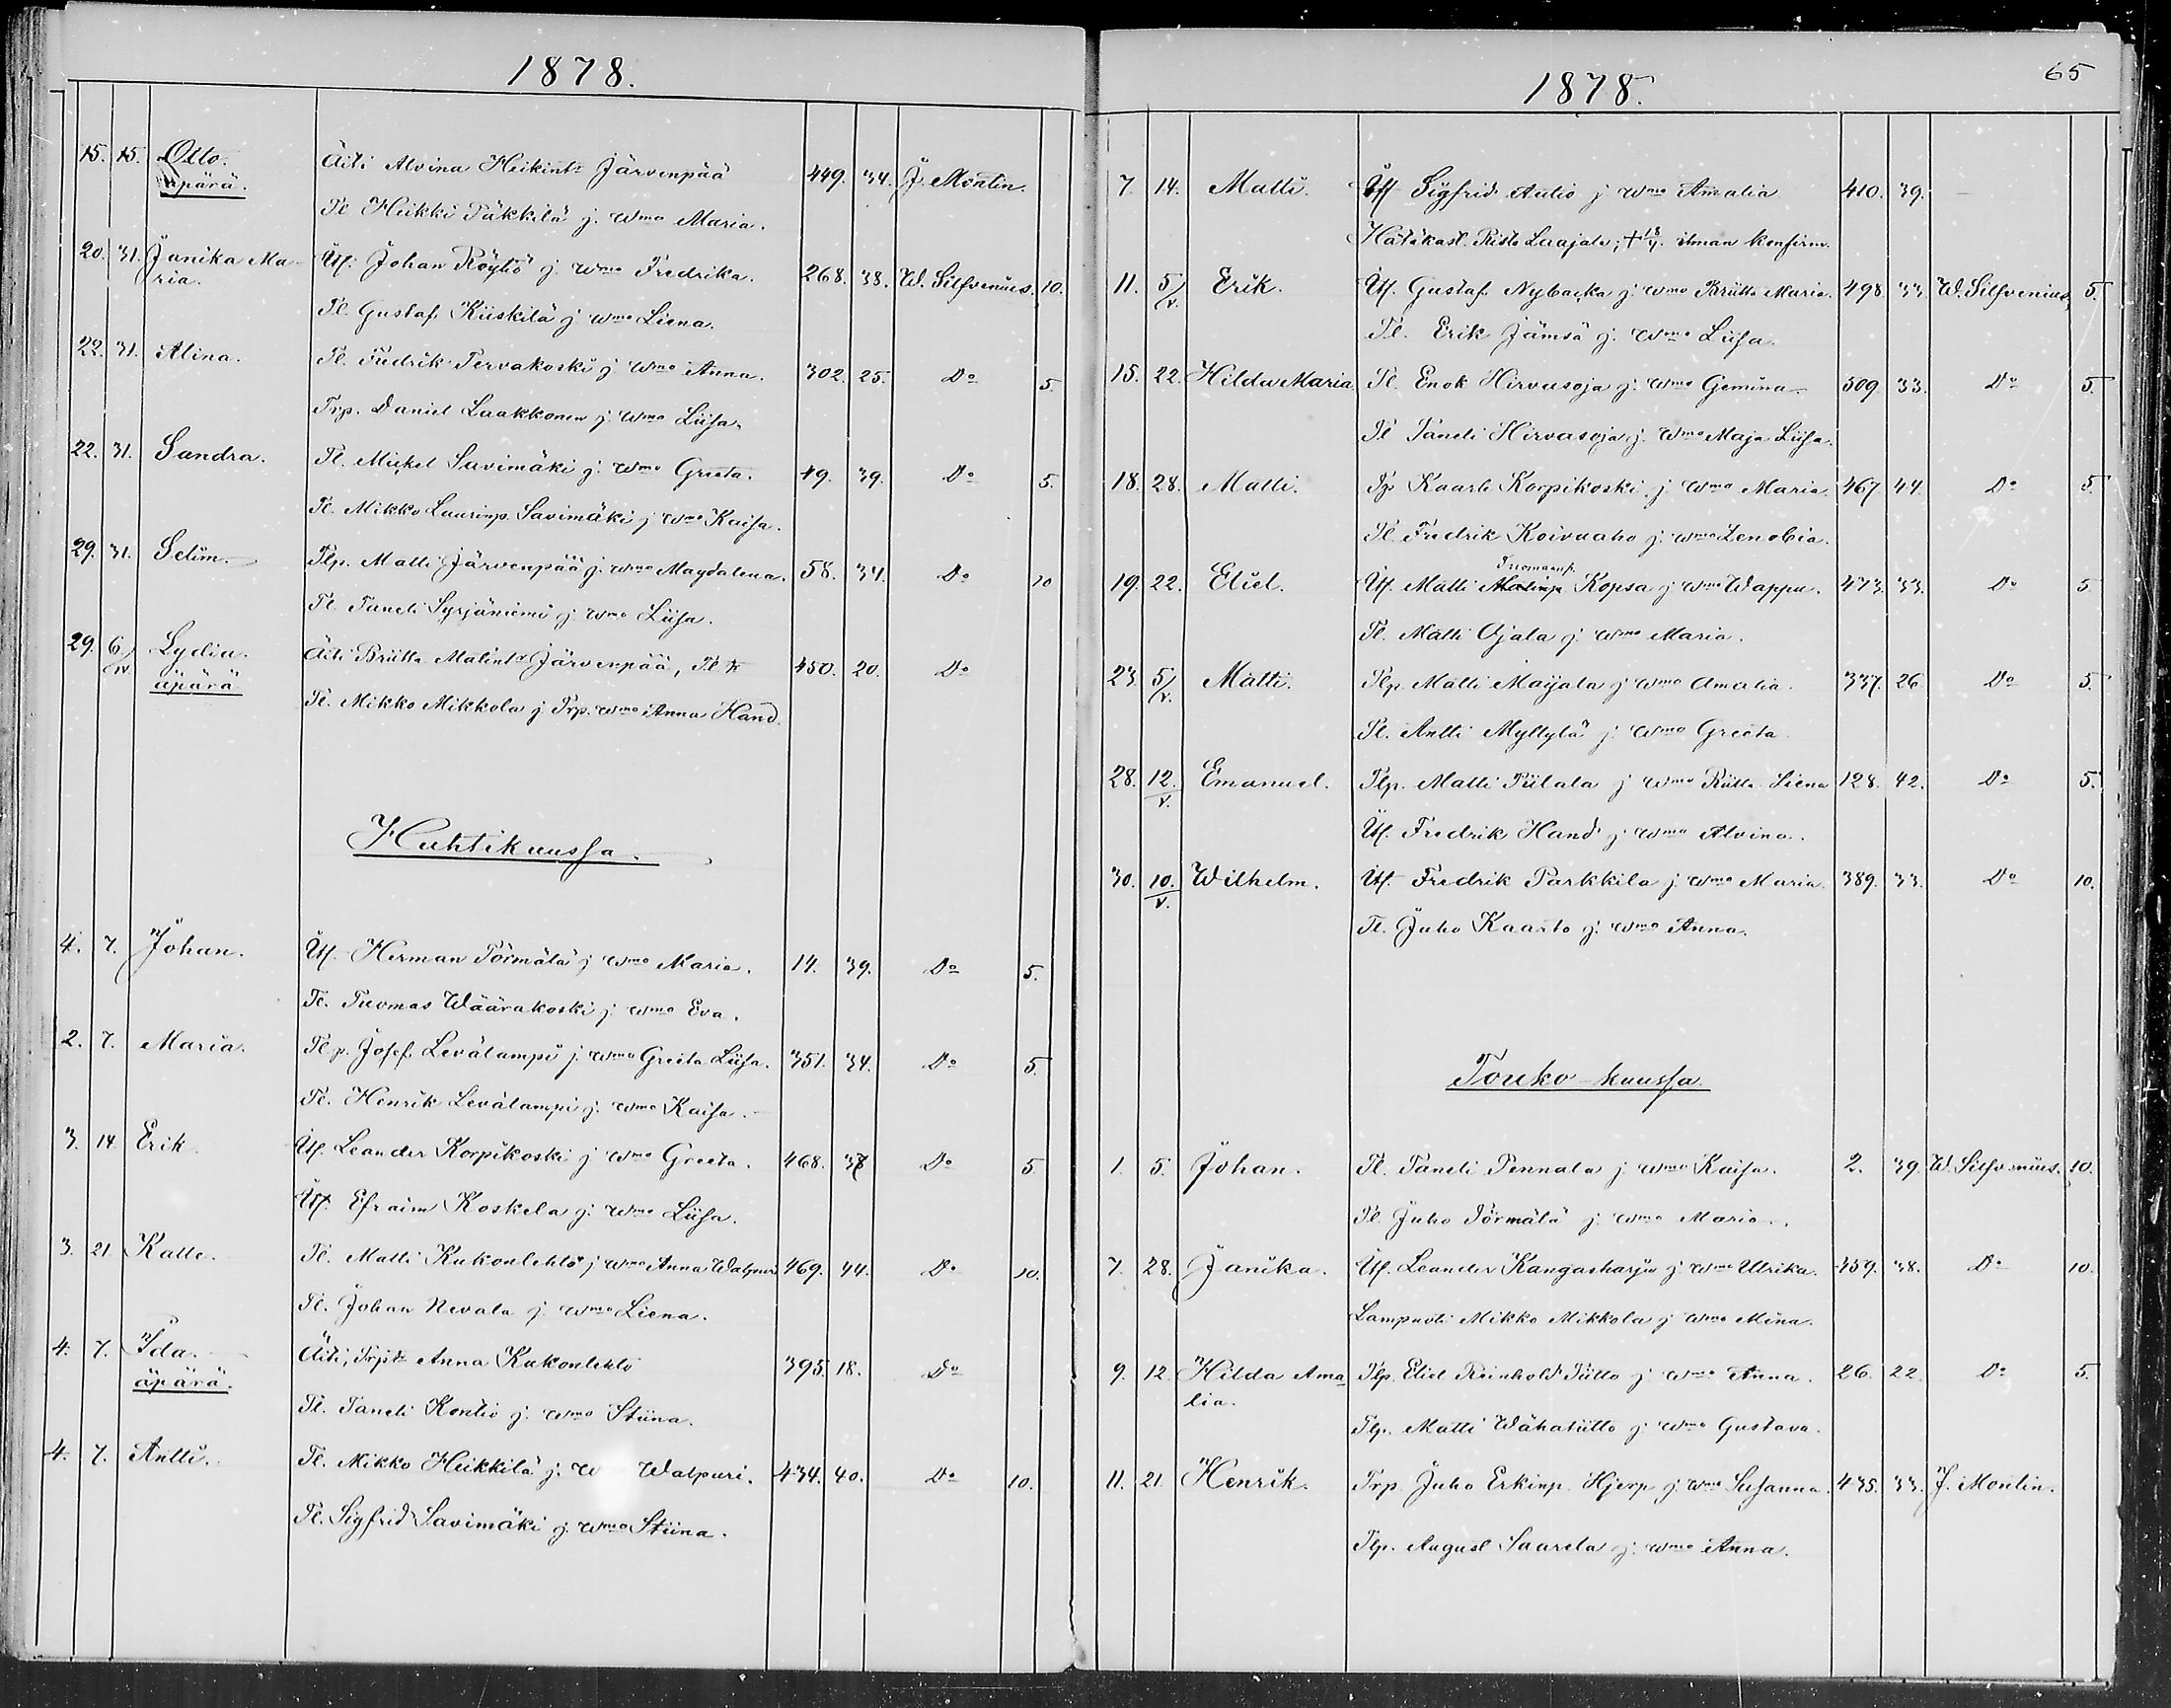 1878.
15. 15. Otto. Äiti Alvina Heikintr Järvenpää 449. 34. J. Montin.
äpärä.
Tl. Heikki Päkkilä j. wmo Maria.
20. 31. Janika Ma- Uts. Johan Röytiö j. wmo Fredrika. 268. 38. W. Silfvenius. 10.
ria.
Tl. Gustaf Kiiskilä j. wmo Liena.
22. 31. Alina. Tl. Fredrik Tervakoski j. wmo Anna. 302. 25. Do 5
Trp. Daniel Laakkonen j. wmo Liisa.
22. 31. Sandra. Tl. Mickel Savimäki j. wmo Greeta. 49. 39. Do 5.
Tl. Mikko Laurinp. Savimäki j. wmo Kaisa.
29. 31. Selim. Tlp. Matti Järvenpää j. wmo Magdalena. 58. 34. Do 10
Tl. Taneli Syrjäniemi j. wmo Liisa.
29. 6/IV. Lydia. Äiti Briitta Matintr Järvenpää, Tl. tr 450. 20. Do
äpärä
Tl. Mikko Mikkola j. Trp. wmo Anna Hand.
Huhtikuussa.
4. 7. Johan. Uts. Herman Törmälä j. wmo Maria. 14. 39. Do 5.
Tl. Tuomas Wäärakoski j. wmo Eva.
2. 7. Maria. Tlp. Josef Levälampi j. wmo Greeta Liisa. 351. 34. Do 5.
Tl. Henrik Levälampi j. wmo Kaisa.
3. 14. Erik. Uts. Leander Korpikoski j. wmo Greeta. 468. Do 5
Uts. Efraim Koskela j. wmo Liisa.
3. 21. Kalle. Tl. Matti Kukonlehto j. wmo Anna Walpuri 469. 44. Do 10.
Tl. Johan Nevala j. wmo Liena.
4. 7. Ida. Äiti, Trptr Anna Kukonlehto 395. 18. Do
äpärä.
Tl. Taneli Kontio j. wmo Stiina.
4. 7. Antti. Tl. Mikko Heikkilä j. w Walpuri. 434. 40. Do 10.
Tl. Sigfrid Savimäki j. wmo Stiina.
65
1878.
7. 14. Matti. Uts. Sigfrid Autio j. wmo Amalia 410. 39.
Hätäkast. Risto Laajala; + 18/4. ilman konfirm.
11. 5/V. Erik. Uts. Gustaf Nybacka j. wmo Briitta Maria. 498. 33. W. Silfvenius 5.
Tl. Erik Jämsä j. wmo Liisa.
15. 22. Hilda Maria Tl. Enok Hirvasoja j. wmo Gemina. 509. 33. Do 5.
Tl. Taneli Hirvasoja j. wmo Maja Liisa.
18. 28. Matti. Tp. Kaarle Korpikoski j. wmo Maria. 467 44. Do 5.
Tl. Fredrik Koivuaho j. wmo Zenobia.
Tuomaanp.
19. 22. Eliel. Uts. Matti Matinp Kopsa j. wmo Wappu. 473. 33. Do 5.
Tl. Matti Ojala j. wmo Maria.
23 5/V. Matti. Tlp. Matti Maijala j. wmo Amalia. 337. 26 Do 5.
Tl. Antti Myllylä j. wmo Greeta
28. 12./V. Emanuel. Tlp. Matti Piilala j. wmo Riitta Liena 128. 42. Do 5.
Uts. Fredrik Hand j. wmo Alvina.
30. 10./V. Wilhelm. Uts. Fredrik Parkkila j. wmo Maria 389. 33. Do 10.
Tl. Juho Kaarto j. wmo Anna.
Touko-kuussa.
1. 5. Johan. Tl. Taneli Pennala j. wmo Kaisa. 2. 39. W. Silfvenius. 10.
Tl. Juho Törmälä j. wmo Maria.
7. 28. Janika. Uts. Leander Kangasharju j. wmo Ulrika. 359. 38. Do 10.
Lampuoti Mikko Mikkola j. wmo Mina.
9. 12. Hilda Ama- Tlp. Eliel Reinhold Tiitto j. wmo Anna. 26. 22. Do 5.
lia.
Tlp. Matti Wähätiitto j. wmo Gustava.
11. 21. Henrik. Trp. Juho Erkinp. Hjerp j. wmo Susanna. 435. 33. J. Montin.
Tlp. August Saarela j. wmo Anna.